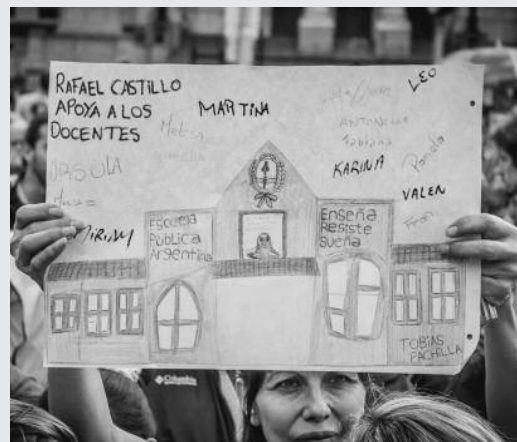 RAFAEL CASTILLO
APOYA A LOS
DOCENTES
MARTINA
LEO
ANTONELLA
Fabiana
KARINA
Pamela
VALEN
Fran
Melisa
URSULA
MIRIAM
Escuela
Pública
Argentina
Enseña
Resiste
Sueña
TOBIAS
PACHELLA
Columbia